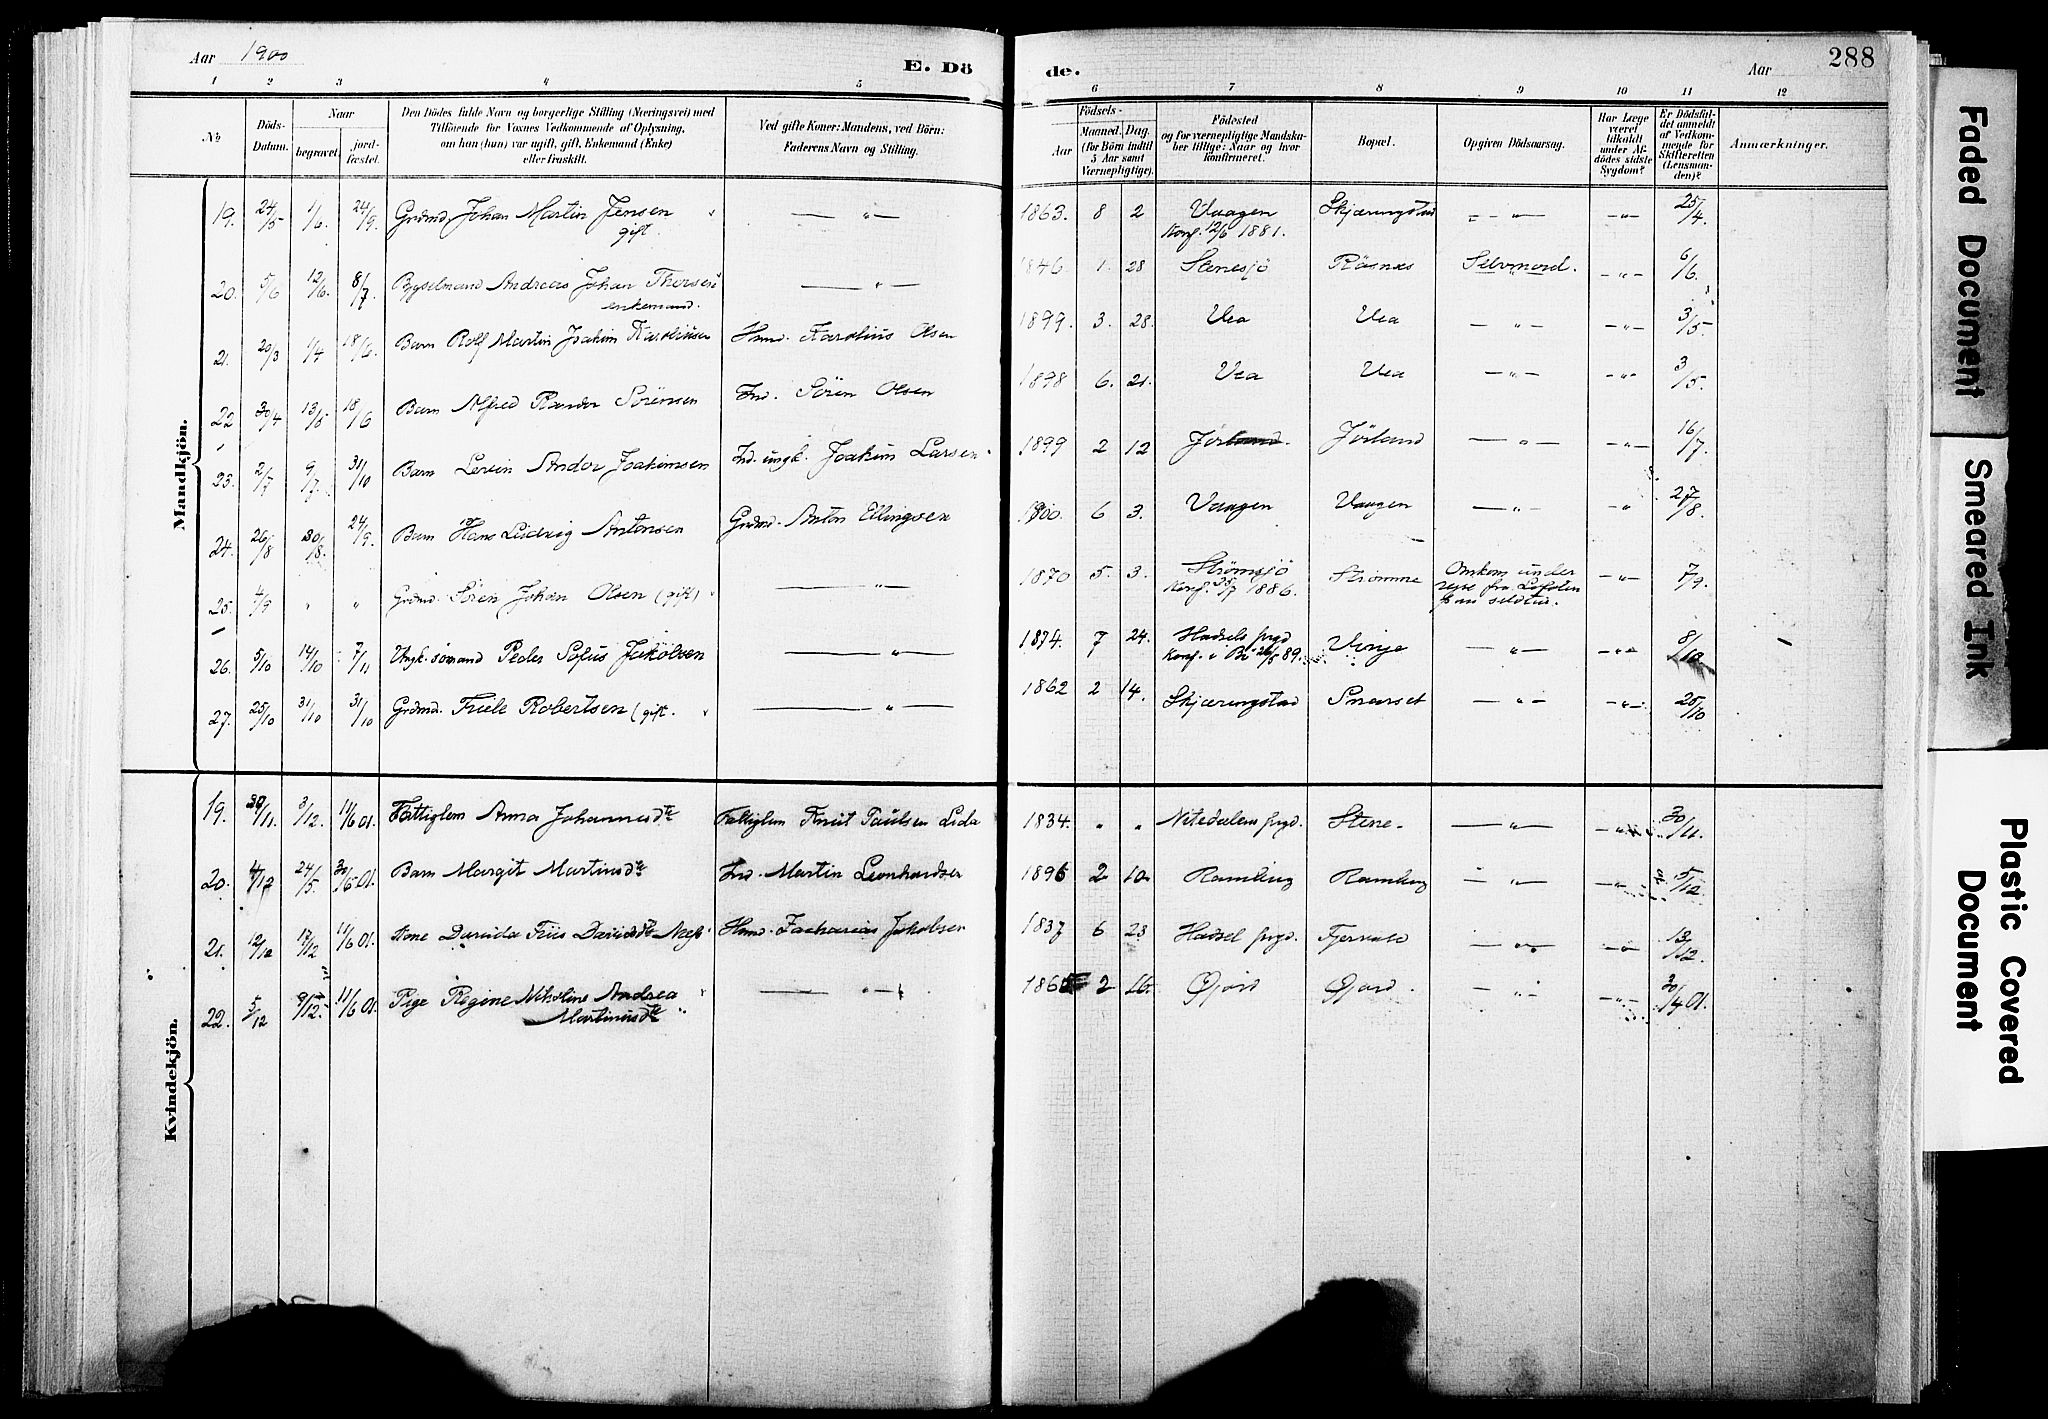 Aar 1900
E. Dö
de.
Aar
288
1 2 3 4 5 6 7 8 9 10 11 12
№
Döds-Datum.
Naar
begravet.
jord-fæstet.
Den Dödes fulde Navn og borgerlige Stilling (Næringsvei) med
Tilföiende for Voxnes Vedkommende af Oplysning,
om han (hun) var ugift, gift, Enkemand (Enke)
eller fraskilt.
Ved gifte Koner: Mandens, ved Börn:
Faderens Navn og Stilling.
Födsels-
Aar
Maaned. Dag.
(for Börn indtil
5 Aar samt
Værnepligtige).
Födested
og for værnepligtige Mandska-
ber tillige: Naar og hvor
konfirmeret.
Bopæl.
Opgiven Dödsaarsag.
Har Læge
været
tilkaldt
under Af-
dödes sidste
Sygdom?
Er Dödsfal-
det anmeldt
af Vedkom-
mende for
Skifteretten
(Lensman-
den)?
Anmærkninger.
Mandkjön.
19. 24/5 1/6 24/9. Grdmd. Johan Martin Jensen gift. — " — 1863. 8 2 Vaagen Konf. 12/6 1881. Skjæringstad — " — — " — 25/4.
20. 5/6 12/6. 8/7. Bygselmand Andreas Johan Thorsen enkemand. — " — 1846. 1. 28 Stenesjö Räsnæs Selvmord. — " — 6/6.
21. 20/3 1/4 18/6. Barn Rolf Martin Joakim Karoliusen Hmd. Karolius Olsen 1899. 3. 28. Vea Vea — " — — " — 3/5
22 30/4 13/5 18/6 Barn Alfred Rander Sörensen Ind. Sören Olsen 1898 6. 21. Vea Vea — " — — " — 3/5.
23. 2/7 9/7. 31/10 Barn Levin Andor Joakimsen Ind. ungk. Joakim Larsen 1899 2 12 Jörland. Jörland — " — — " — 16/7.
24. 26/8 30/8. 24/9. Barn Hans Ludvig Antonsen Grdmd. Anton Ellingsen 1900. 6 3. Vaagen Vaagen — " — — " 27/8.
25. 4/9 " " Grdmd. Sören Johan Olsen (gift) — " — 1870 5. 3. Strömsjö Konf. 25/7 1886. Strömme Omkom under reise fra Lofoten paa sildtur. — " — 7/9.
26. 5/10 14/10 7/11 Ungk. sömand Peder Sofus Jakobsen — " — 1874. 7 24. Hadsels prgd Konf. i Bö 26/5 89. Vinje — " — — " — 8/10
27. 25/10 31/10 31/10 Grdmd. Friele Robertsen (gift. — " — 1862 2 14. Skjæringstad Smorset — " — — " — 25/10
Kvindekjön.
19. 30/11. 3/12. 11/6 01. Fattiglem Anna Johannesdtr Fattiglem Knut Paulsen Lida 1834. " " Nitedalens prgd. Stene. — " — — " — 30/11.
20. 4/12 24/5. 30/6 01. Barn Margit Martinsdtr Ind. Martin Leonhardsen 1896 2 10 Ramberg Ramberg — " — — " — 5/12.
21. 12/12 17/12 11/6 01. Kone Davida Friis Davidsdtr Næss Hmd. Zacharias Jakobsen 1837 6 23 Hadsel prgd. Fjervold — " — — " — 13/12
22. 5/12 9/12. 11/6 01. Pige Regine Nikoline Andrea Martinusdtr — " — 186 2 16. Gjörd Gjörd. — " — — " — 30/4 01.
Faded Document
Smeared Ink
Plastic Covered
Document